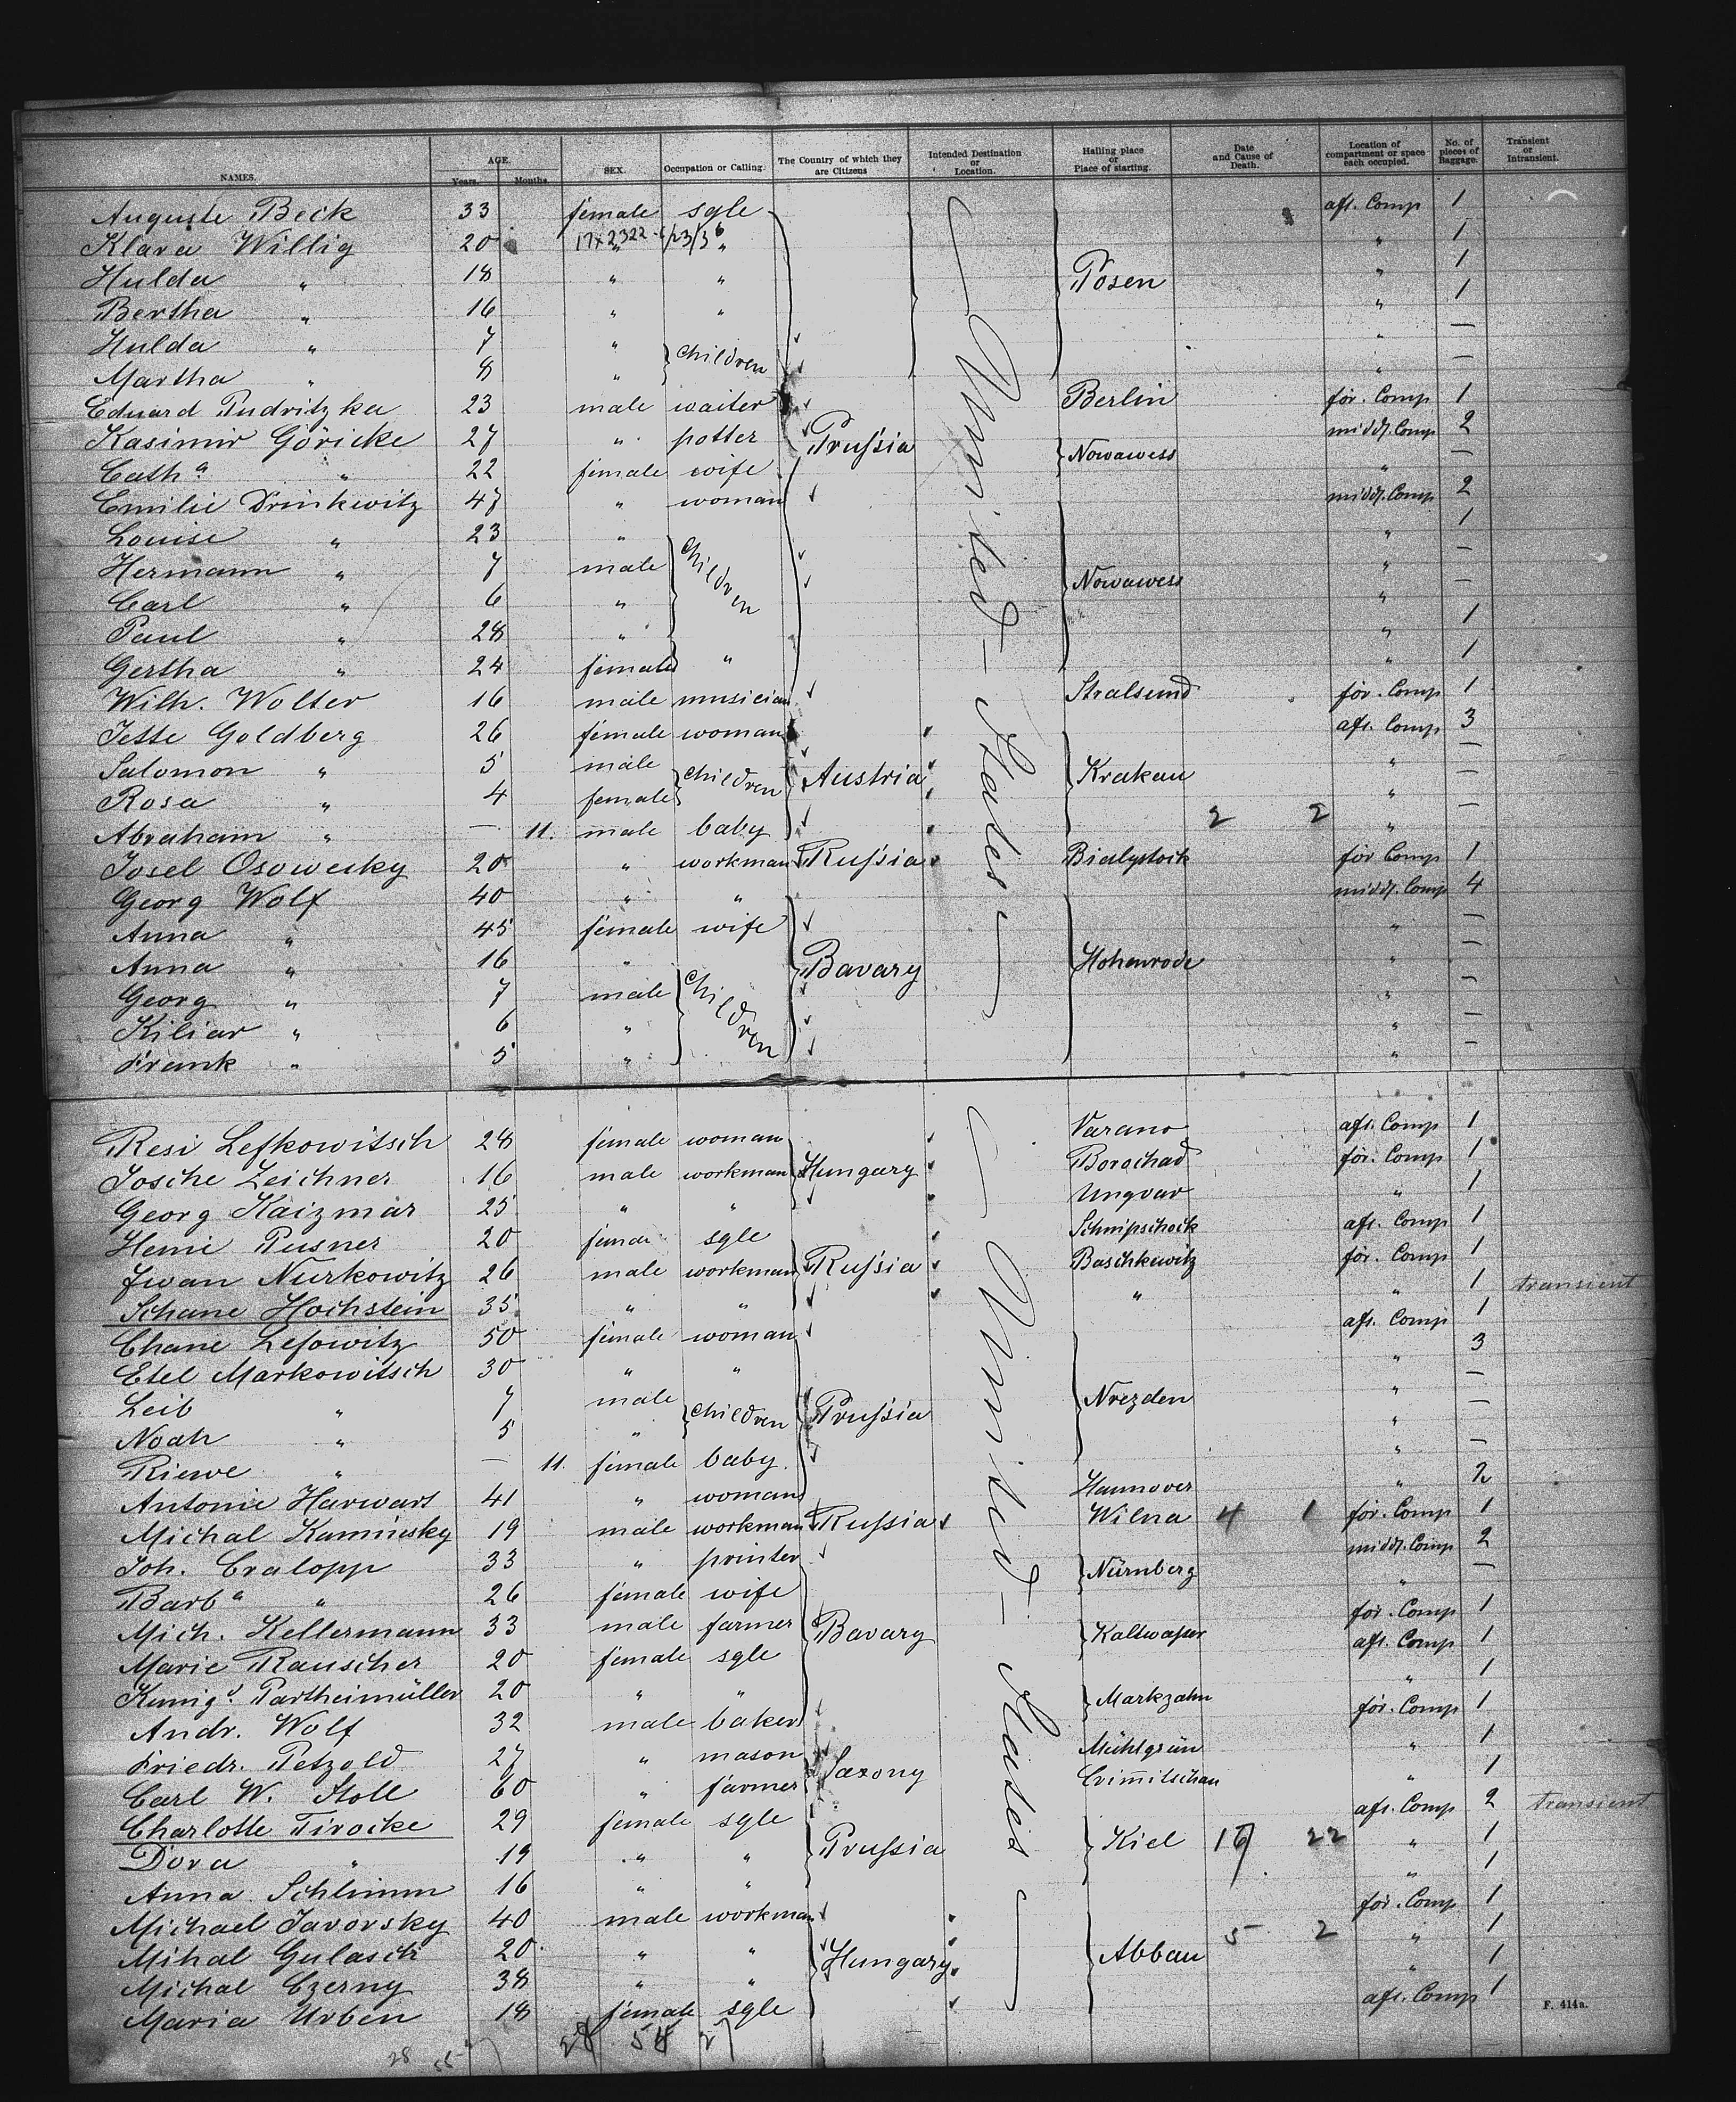 NAMES. AGE. Years. Months. SEX. Occupation or Calling. The Country of which they are Citizens Intended Destination or Location. Hailing place or Place of starting. Date and Cause of Death. Location of compartment or space each occupied. No. of pieces of Baggage. Transient or Intransient.
Auguste Beck 33 female sgle aft. Comp 1
Klara Willig 20 " " " 1
Hulda " 18 " " Posen " 1
Bertha " 16 " " " 1
Hulda " 7 " " —
Martha " 8 " children " —
Eduard Pudritzka 23 male waiter Berlin for. Comp 1
Kasimir Göricke 27 " potter Prussia midd. Comp 2
Cath.a " 22 female wife Nowawess " —
Emilie Drinkwitz 47 " woman midd. Comp 2
Louise " 23 " " 1
Hermann " 7 male children " —
Carl " 6 " Nowawess " —
Paul " 28 " " 1
Gertha " 24 female " " 1
Wilh. Wolter 16 male musician Stralsund for. Comp 1
Jette Goldberg 26 female woman aft. Comp 3
Salomon " 5 male " —
Rosa " 4 female children Austria Krakau " —
Abraham " — 11. male baby 2 2 " —
Josel Osowecky 20 " workman Russia Bialystock for Comp 1
Georg Wolf 40 " " midd. Comp 4
Anna " 45 female wife " —
Anna " 16 " Bavary Hohenrode " —
Georg " 7 male children " —
Kiliar " 6 " " —
Frank " 5 " " —
United-States
Resi Lefkowitsch 28 female woman Varano aft. Comp 1
Josche Zeichner 16 male workman Hungary Borochad for. Comp 1
Georg Kaizmar 25 " " Ungvar " 1
Hemi Pusner 20 female sgle Schnipschock aft. Comp 1
Iwan Nurkowitz 26 male workman Russia Baschkewitz for. Comp 1
Schane Hochstein 35 " " " " 1 transient
Chane Lefowitz 50 female woman aft. Comp 1
Etel Markowitsch 30 " " " 3
Leib " 7 male Nrezden " —
Noah " 5 " children Prussia " —
Riewe " — 11. female baby " —
Antonie Harwart 41 " woman Hannover " 2
Michal Kaminsky 19 male workman Russia Wilna 4 1 for. Comp 1
Joh. Cralopp 33 " printer midd. Comp 2
Barb.a " 26 female wife Nürnberg " —
Mich. Kellermann 33 male farmer Bavary for. Comp 1
Marie Rauscher 20 female sgle Kaltwasser aft. Comp 1
Kunig.d Partheimüller 20 " " " 1
Andr. Wolf 32 male baker Markzahn for. Comp 1
Friedr. Petzold 27 " mason Mühlgrün " 1
Carl W. Stoll 60 " farmer Saxony Crimitschau " 1
Charlotte Tirocke 29 female sgle aft. Comp 2 transient
Dora " 19 " " Prussia Kiel 22 " 1
Anna Schlimm 16 " " " 1
Michael Javorsky 40 male workman for. Comp 1
Mihal Gulasch 20 " " 5 2 " 1
Michal Czerny 38 " " Hungary Abbau " 1
Maria Urben 18 female sgle aft. Comp 1
United-States
F. 414a.
28